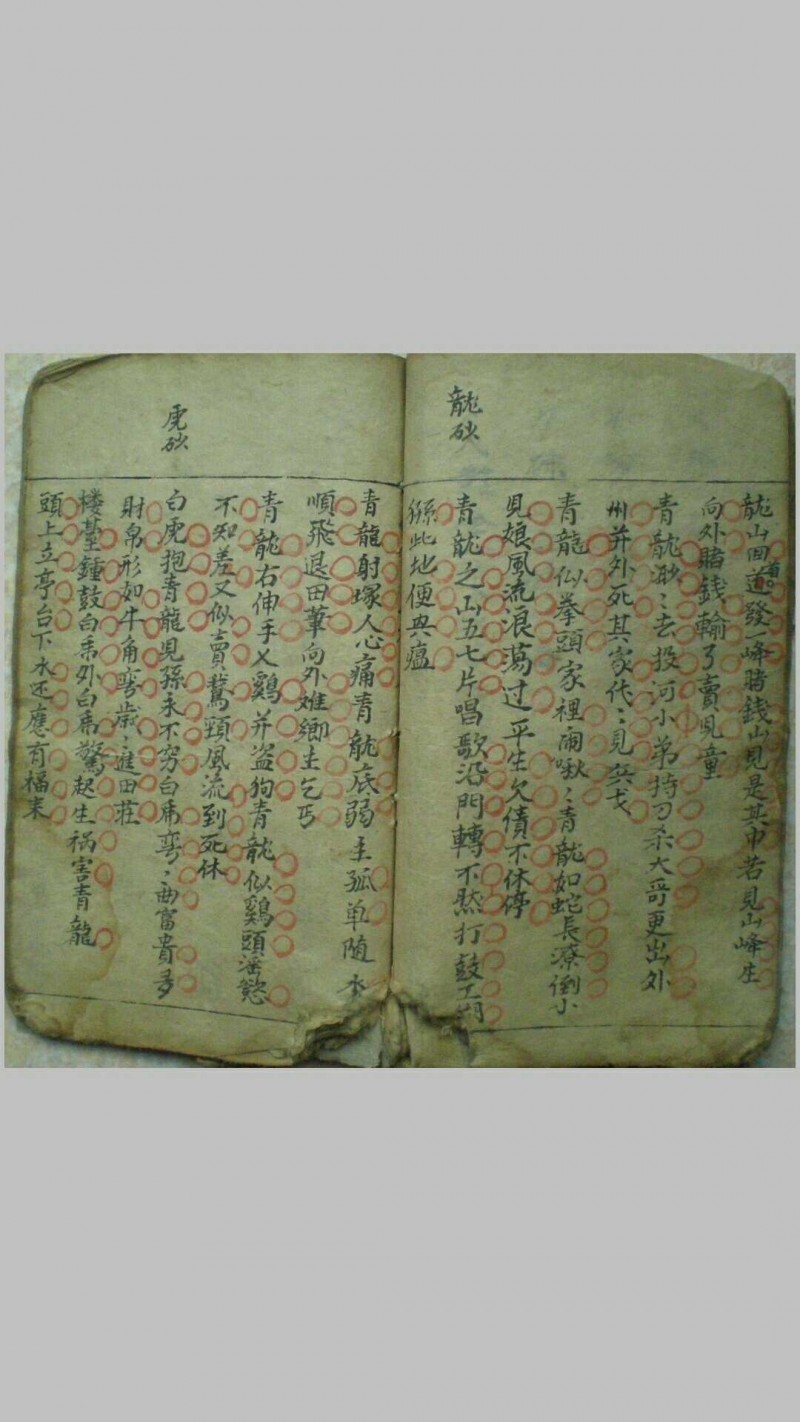 龍砂
龍山回道發一峰賭錢山見是其中若見山峰生
向外賭錢輸了賣兒童
青龍砂〻去投河小弟持刀杀大哥更出外
州并外死其家代〻見兵戈
青龍似拳頭家裡鬧啾〻青龍如蛇長潦倒小
兒娘風流浪蕩过平生欠債不休停
青龍之山五七片唱歌沿門轉不然打鼓
此地便與瘟
青龍射塚人心痛青龍底弱主孤单随水
順飛退田筆向外难鄉土乞丐
青龍右伸手乂鷄并盗狗青龍似鷄頭滛慾
不知羞又似賣鵞頸風流到死休
虎砂
白虎抱青龍兒孫永不穷白虎弯〻曲富貴多
財帛形如牛角弯歲〻進田莊
楼臺鍾鼓白虎外白虎驚起生祸害青龍
頭上立亭台下水还應有福来